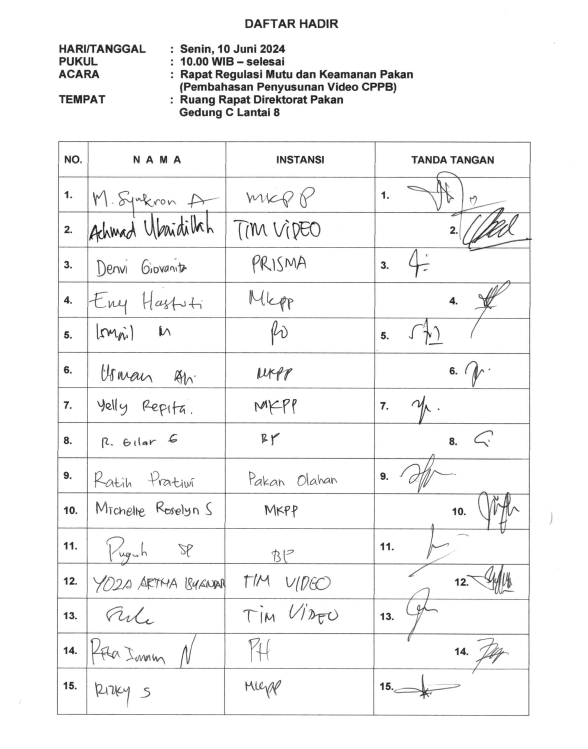 DAFTAR HADIR
HARI/TANGGAL : Senin, 10 Juni 2024
PUKUL : 10.00 WIB – selesai
ACARA : Rapat Regulasi Mutu dan Keamanan Pakan
(Pembahasan Penyusunan Video CPPB)
TEMPAT : Ruang Rapat Direktorat Pakan
Gedung C Lantai 8
NO. N A M A INSTANSI TANDA TANGAN
1. M. Syukron A MKPP 1.
2. Achmad Ubaidillah TIM VIDEO 2.
3. Denvi Giovanita PRISMA 3.
4. Eny Hastuti Mkpp 4.
5. Ismail M 5.
6. Usman MKPP 6.
7. Yelly Repita. MKPP 7.
8. R. Gilar G 8.
9. Ratih Pratiwi Pakan Olahan 9.
10. Michelle Roselyn S MKPP 10.
11. Puguh BP 11.
12. YOZA ARTHA ISKANDAR TIM VIDEO 12.
13. TIM VIDEO 13.
14. N PH 14.
15. Rizky S MKPP 15.